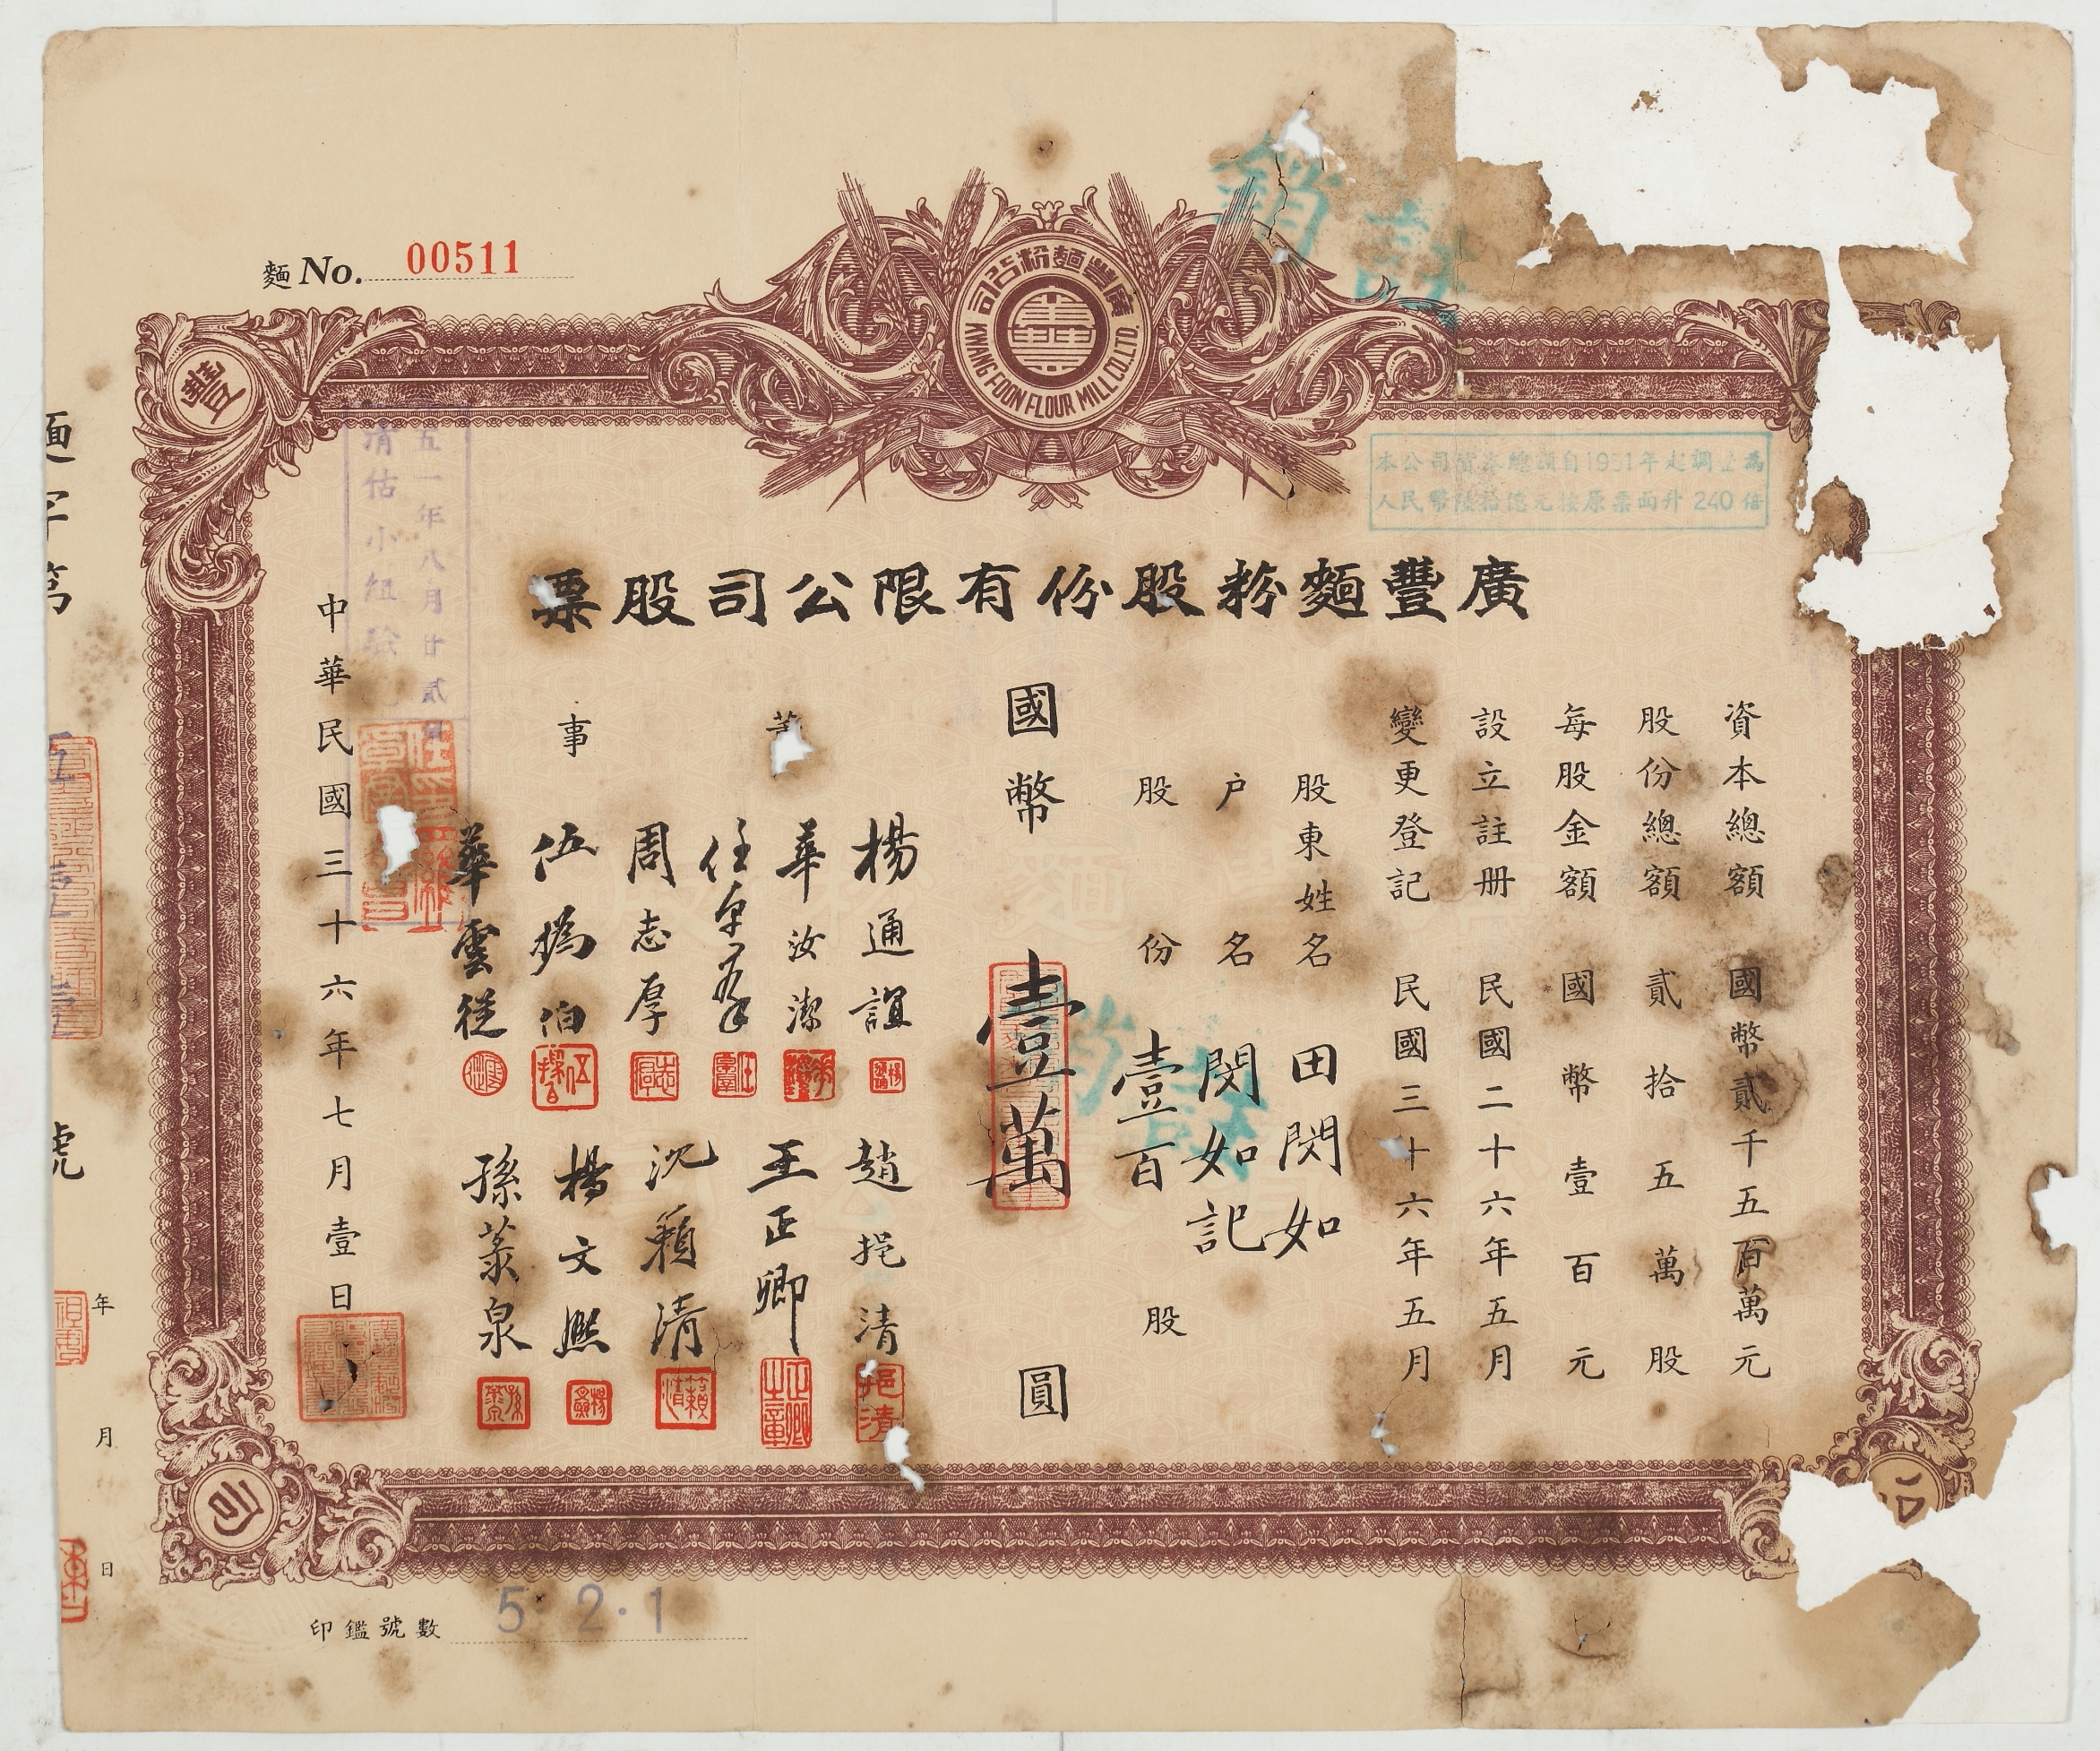 麵 No. 00511
廣豐麵粉公司
KWANG FOON FLOUR MILL CO. LTD.
豐
本公司資本總額自1951年起調整為
人民幣陸拾億元按原票面升 240 倍
五一年八月廿貳日
清估小組
廣豐麵粉股份有限公司股票
資本總額 國幣貳千五百萬元
股份總額 貳拾五萬股
每股金額 國幣壹百元
設立註冊 民國二十六年五月
變更登記 民國三十六年五月
股東姓名 田閔如
户名 閔如記
股份 壹百股
國幣 壹萬 圓
董事
楊通誼
華汝潔
周志厚
華雲從
趙挹清
王正卿
沈籟清
楊文熙
中華民國三十六年七月壹日
註銷
註銷
挹清
司
號
年
月
日
印鑑號數 5·2·1